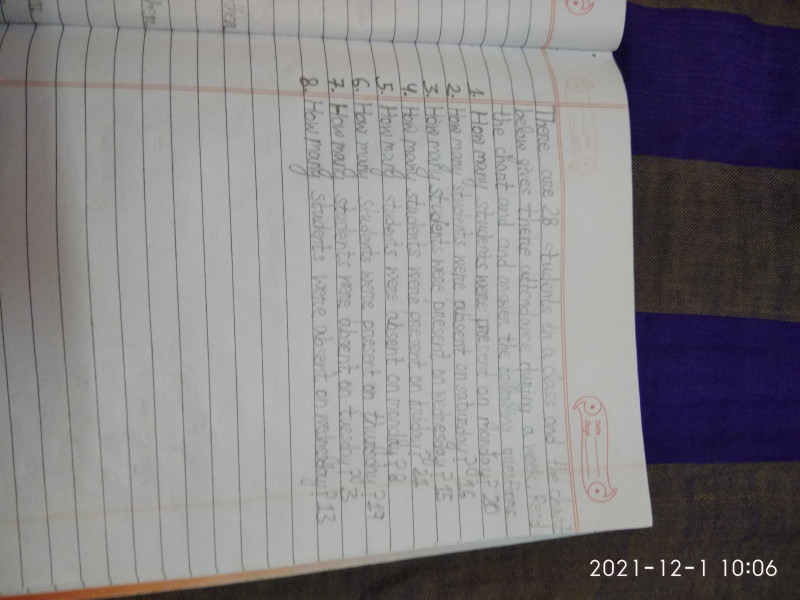 There are 28 students in a class and the chart
below gives theire attendance during a week. Read
the chart and and answer the questions
1. How many students were present on monday? 20
2. How many students were absent on saturday?
3. How many students were present on wednesday? 15
4. How many students were present on friday? 21
5. How many students were absent on monday? 8
6. How many students were present on thursday? 19
7. How many students were absent on tuesday? 3
8. How many students were absent on wednesday? 13
Date
Page
2021-12-1 10:06